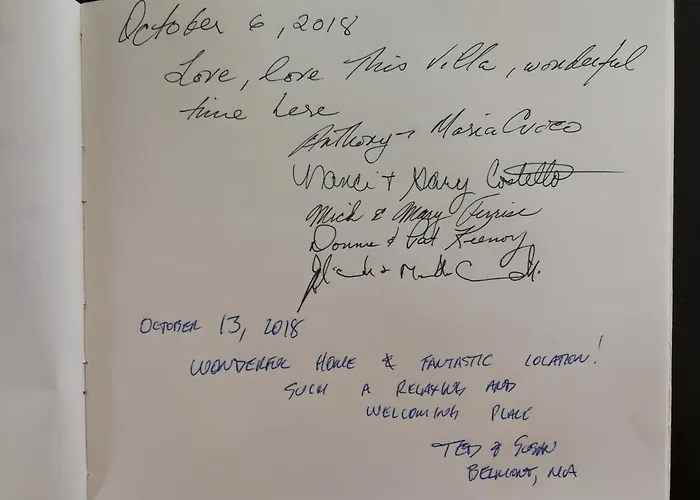 October 6, 2018
Love, love this Villa, wonderful
time here
Anthony + Maria Cucco
Nanci + Gary Costello
Mick & Mary
Donna & Pat
October 13, 2018
WONDERFUL HOME & FANTASTIC LOCATION!
SUCH A RELAXING AND
WELCOMING PLACE
TED & SUSAN
BELMONT, MA